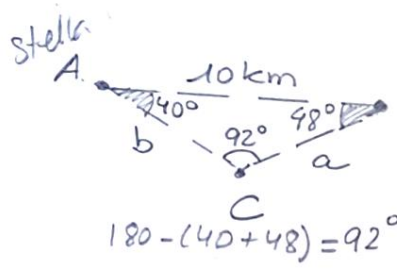 A.
10 km
40°
48°
b
92°
a
C
180-(40+48)=92°